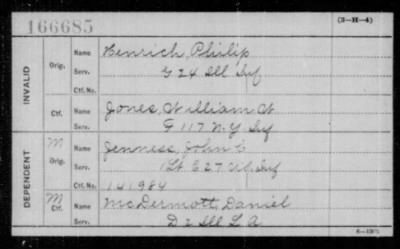 166685
(3-H-4)
INVALID
Orig.
Name Henrich, Philip
Serv. G 24 Ill Inf
Ctf. No.
Ctf.
Name Jones, William W
Serv. F 117 N.Y. Inf
DEPENDENT
M Orig.
Name Jenness, John C
Serv. 1 Lt E 27 Inf
Ctf. No. 141984
M Ctf.
Name McDermott, Daniel
Serv. D 2 Ill L A